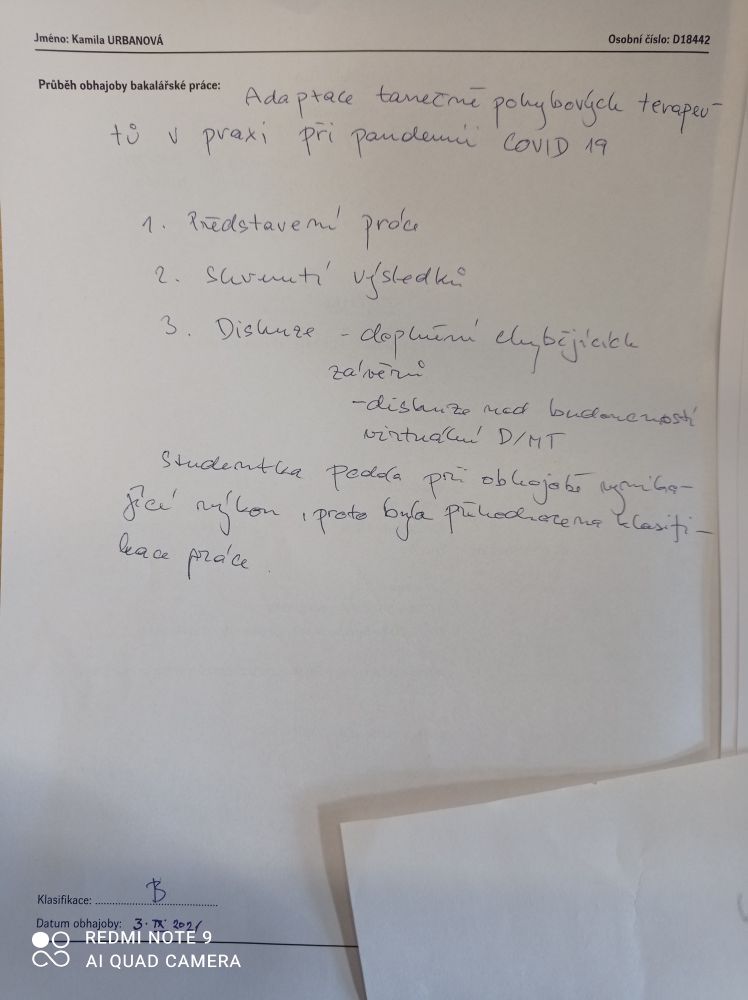 Jméno: Kamila URBANOVÁ Osobní číslo: D18442
Průběh obhajoby bakalářské práce: Adaptace tanečně pohybových terapeu-
tů v praxi při pandemii COVID 19
1. Představení práce
2. Shrnutí výsledků
3. Diskuze - doplnění chybějících
závěrů
- diskuze nad budoucností
virtuální D/MT
Studentka podala při obhajobě vynika-
jící výkon, proto byla přehodnocena klasifi-
kace práce.
Klasifikace: B
Datum obhajoby: 3. IX 2021
REDMI NOTE 9
AI QUAD CAMERA